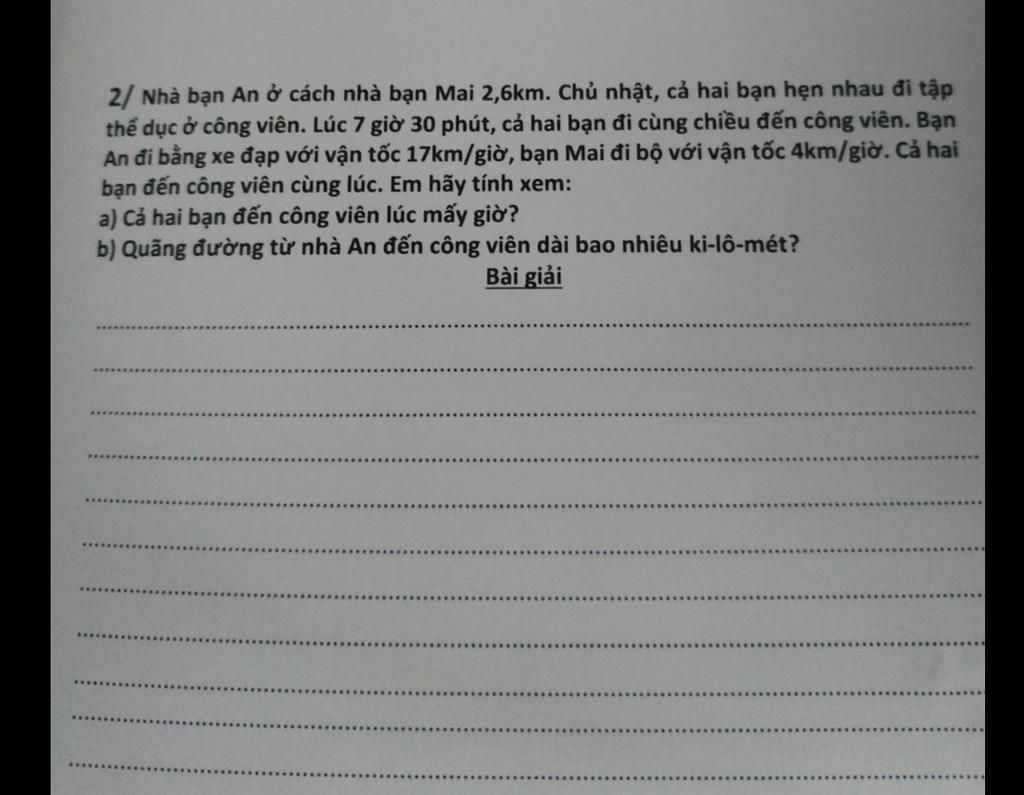 2/ Nhà bạn An ở cách nhà bạn Mai 2,6km. Chủ nhật, cả hai bạn hẹn nhau đi tập
thể dục ở công viên. Lúc 7 giờ 30 phút, cả hai bạn đi cùng chiều đến công viên. Bạn
An đi bằng xe đạp với vận tốc 17km/giờ, bạn Mai đi bộ với vận tốc 4km/giờ. Cả hai
bạn đến công viên cùng lúc. Em hãy tính xem:
a) Cả hai bạn đến công viên lúc mấy giờ?
b) Quãng đường từ nhà An đến công viên dài bao nhiêu ki-lô-mét?
Bài giải